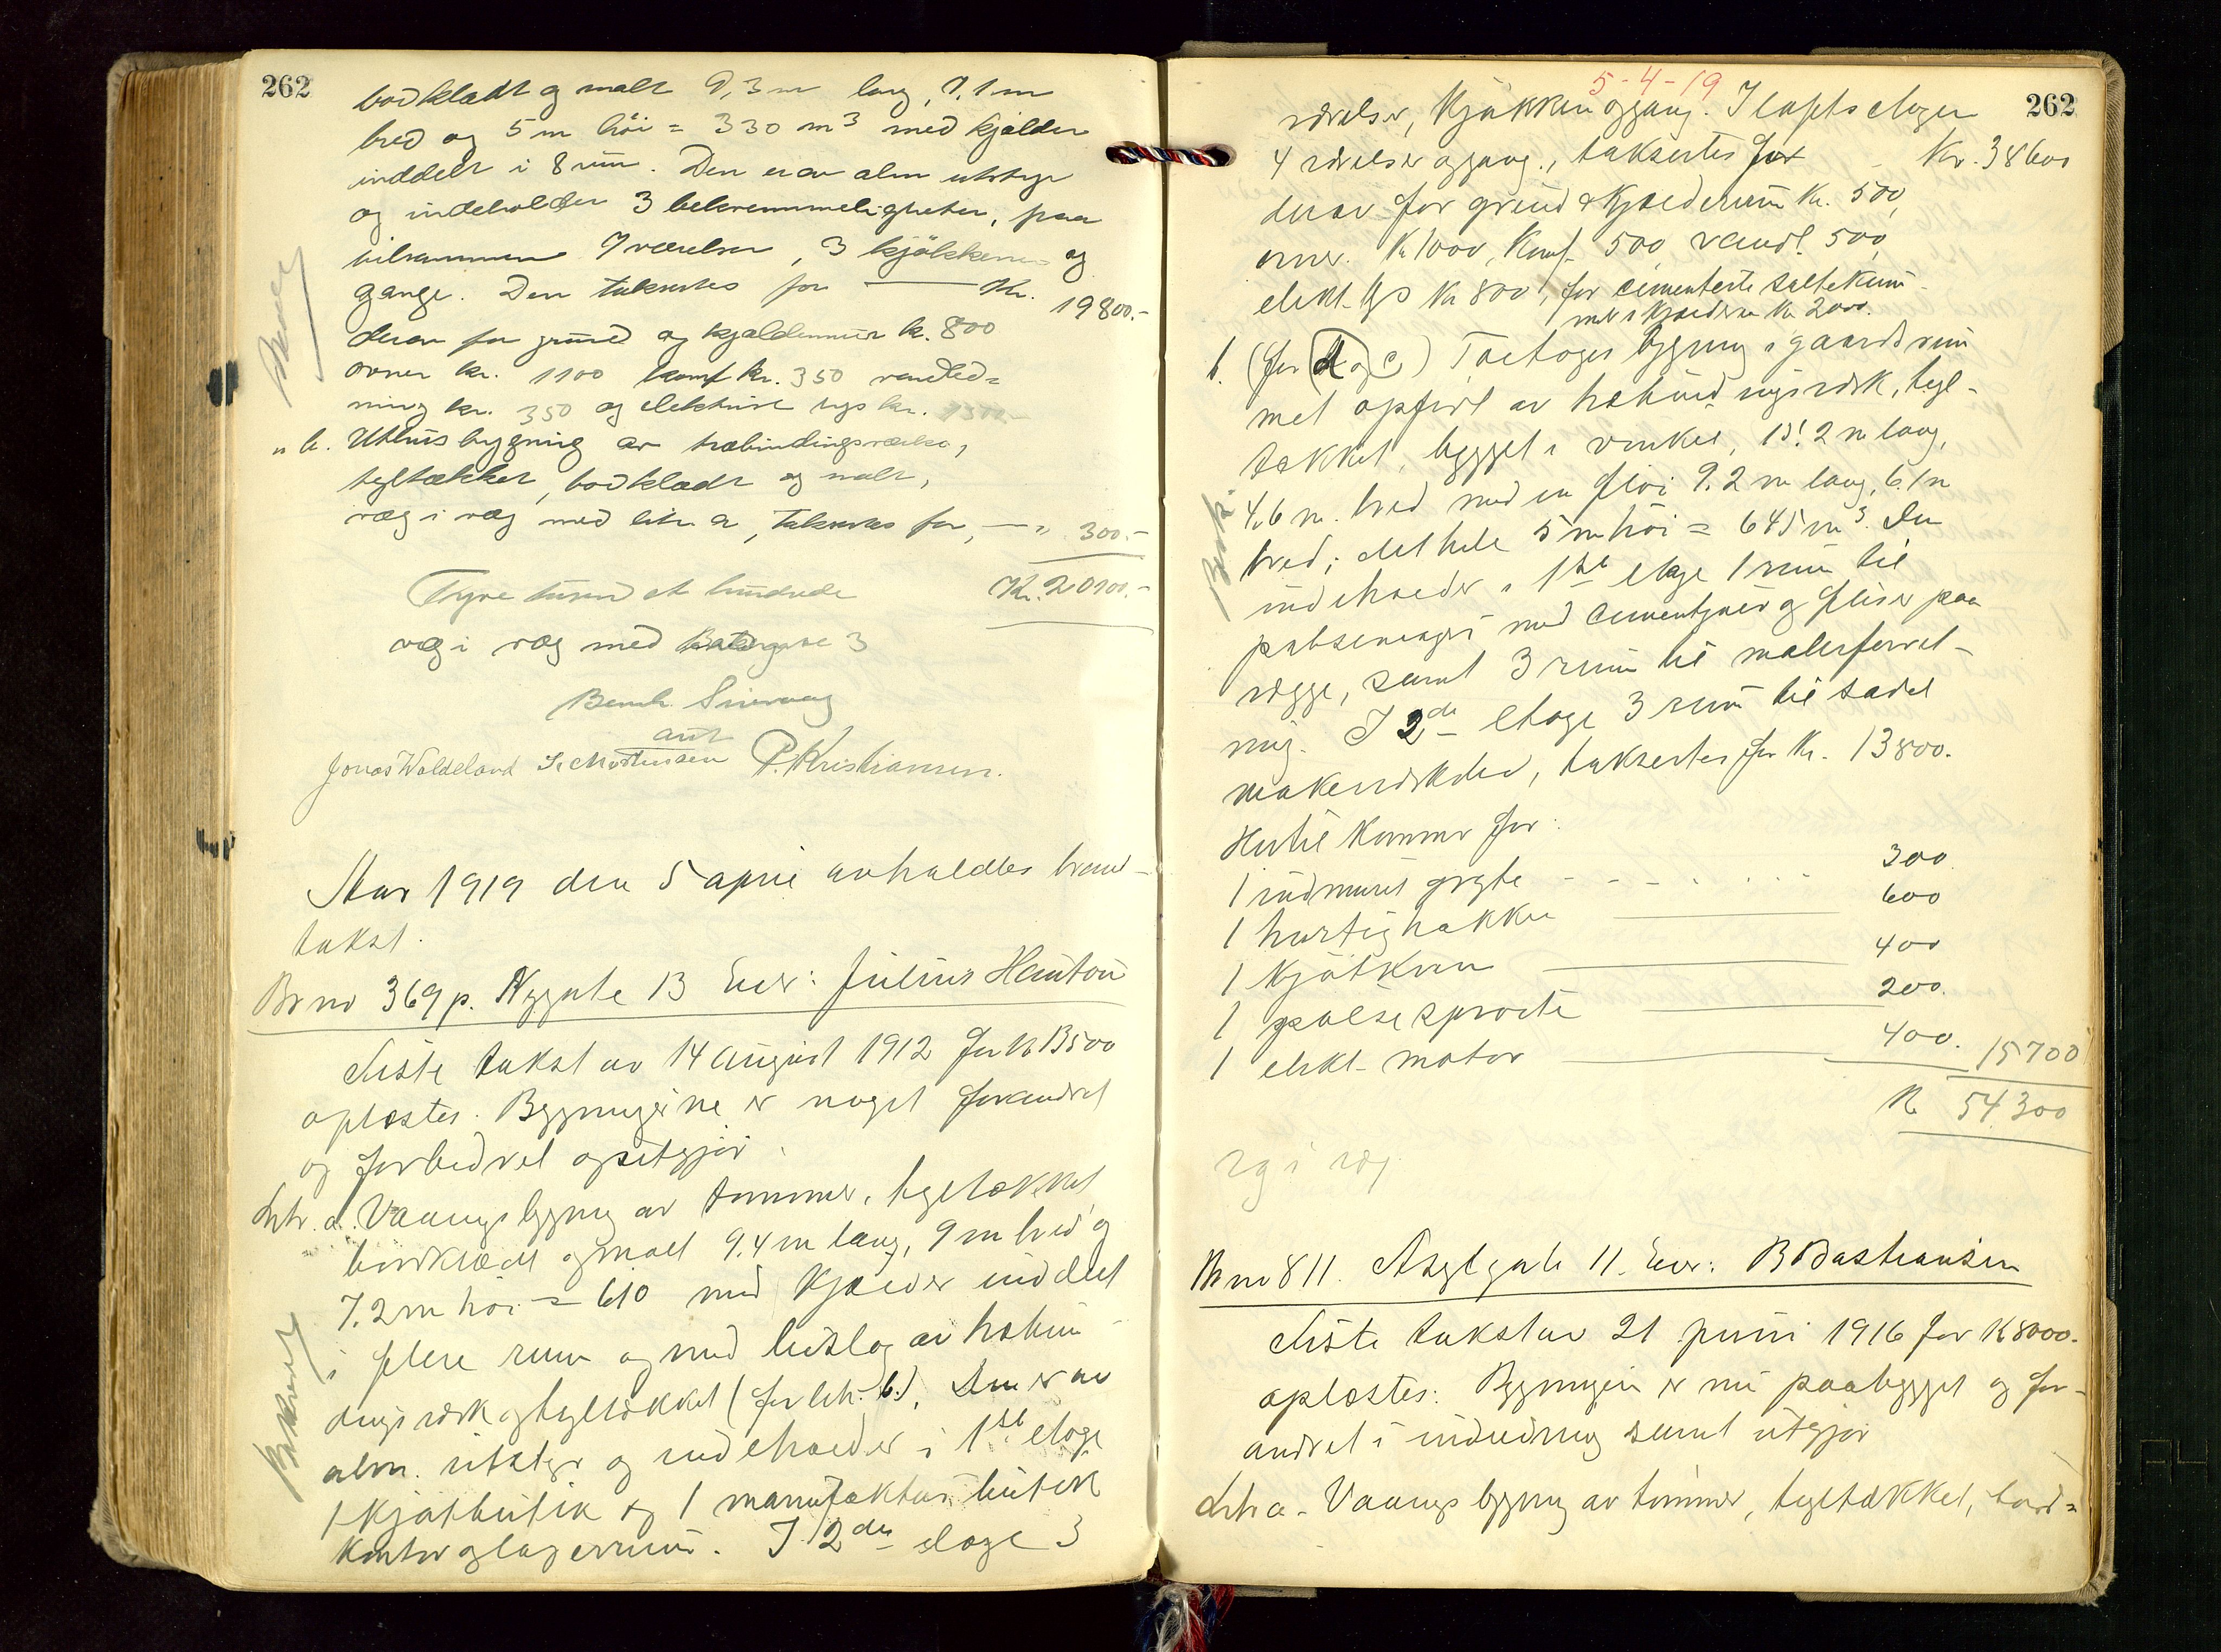 262
bordklædt og malt 9,3 m lang, 7,1 m
bred og 5 m höi = 330 m³ med kjælder
inddelt i 8 rum. Den er av alm utstyr
og indeholder 3 bekvemmeligheter, paa
tilsammen 7 værelser, 3 kjökkener og
gange. Den takseres for — Kr. 19800.-
derav for grund og kjældermur kr. 800
ovner kr. 1100 komf kr. 350 vandled=
ning kr. 350 og elektrisk lys kr.
" b. Uthusbygning av træbindingsverke,
tegltækket, bordklædt og malt,
væg i væg med litr. a, takseres for, — " 300.-
Kr. 20100.-
Tyve tusend et hundrede
væg i væg med 3
Jonas Waldeland P. Kristiansen.
Aar 1919 den 5 april avholdtes brand-
takst.
Br no 369 p. Nygate 13 Eier:
Siste takst av 14 august 1912 for kr 13500
oplæstes. Bygningerne er noget forandret
og forbedret og utgjör.
Litr. a. Vaaningsbygning av tømmer, tegltækket,
bordklædt og malt 9.4 m lang, 9 m bred og
7.2 m höi = 610 med kjælder inddelt
i flere rum og med bislag av træbin-
dingsverk og tegltækket (for litr. b.). Den er av
alm. utstyr og indeholder i 1ste etage
1 kjötbutik og 1 manufaktur butik
kontor og lagerrum. I 2den etage 3
5-4-19
262
værelser, kjøkken og gang. I loftsetagen
4 værelser og gang, takseres for Kr. 38600
derav for grund & kjælderrum Kr. 500,
ovner. Kr 1000, Komf. 500, vandl. 500,
elekt. lys Kr 800, for cementerte saltekum-
mer i kjælderen Kr 2000.
b. (for d og c) Toetages bygning i gaardsrum
met opført av træbindingsverk, tegl-
tækket, bygget i vinkel, 15.2 m lang,
4,6 m. bred med en fløi 9.2 m lang, 6.1 m
bred; det hele 5 m höi = 645 m³. Den
indeholder i 1ste etage 1 rum til
med cementgulv og fliser paa
vægge, samt 3 rum til malerforret-
ning. I 2den etage 3 rum til sadel
makerverksted, takseres for Kr. 13800.
Hertil kommer for:
1 indmuret gryte - - - - 300
1 hurtighakker — 600
1 kjötkvern — 400
1 pølsesprøite — 200.
1 elekt. motor — 400. 15700
Kr 54300
væg i væg
Br no 811. Asylgate 11. Eier: B Bastiansen
Siste takst av 21 juni 1916 for Kr 8000.
oplæstes. Bygningen er nu paabygget og for-
andret i indredning samt utgjør
Litr a. Vaaningsbygning av tømmer, tegltækket, bord=